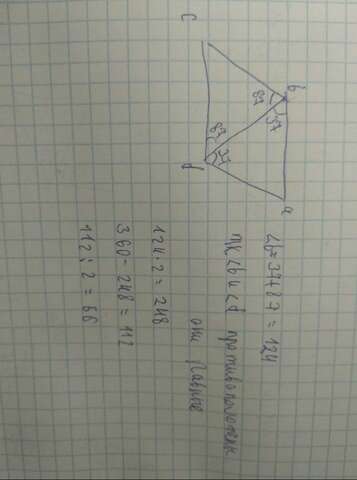 c
b
87 37
83 37
d
a
∠b=37+87 = 124
тк ∠b и ∠d противоположены
они равные
124·2 = 248
360-248 = 112
112:2 = 66